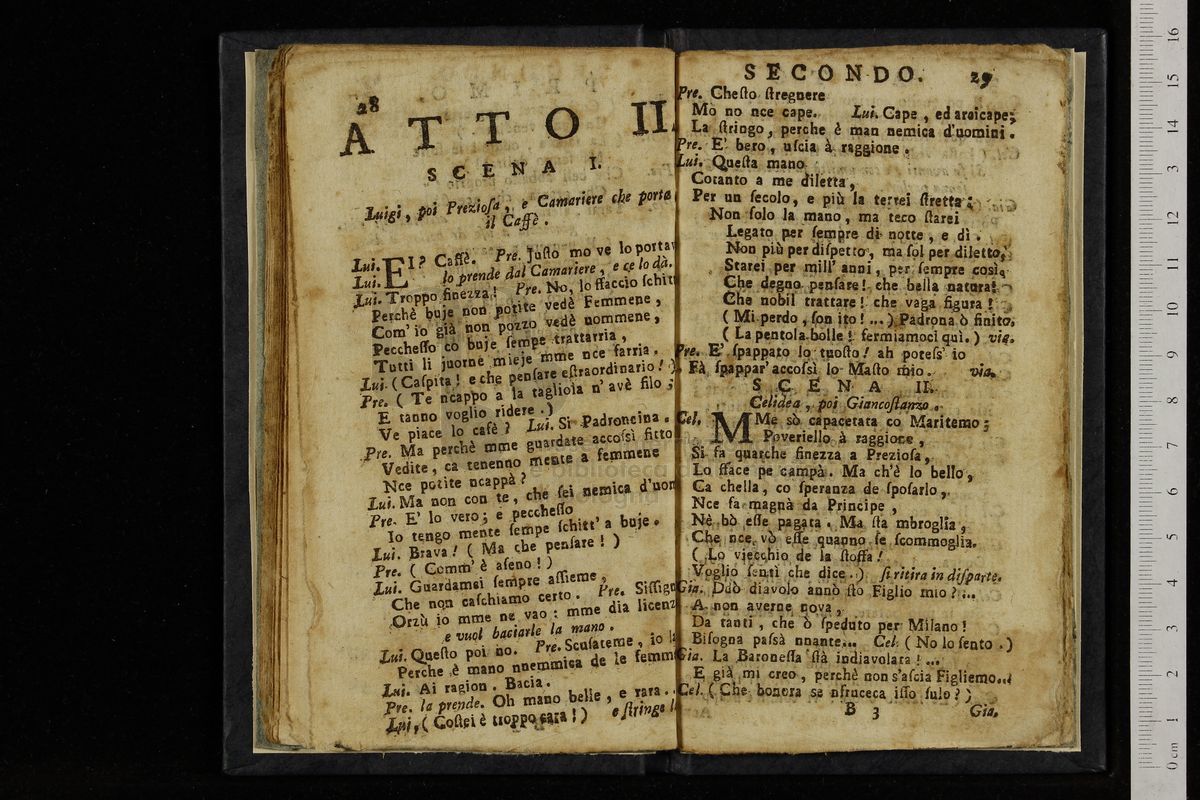 28
ATTO II.
SCENA I.
Luigi, poi Preziosa, e Camariere che porta
il Caffè.
Lui. EI? Caffè. Pre. Justo mo ve lo porta
Lui. lo prende dal Camariere, e ce lo dà.
Lui. Troppo finezza! Pre. No, lo ffaccio schitt
Perchè buje non potite vedè Femmene,
Com' io già non pozzo vedè nommene,
Pecchesso co buje sempe trattarria,
Tutti li juorne mieje mme nce farria.
Lui. (Caspita! e che pensare estraordinario!)
Pre. (Te ncappo a la tagliola n' avè filo;
E tanno voglio ridere.)
Ve piace lo cafè? Lui. Si Padroncina.
Pre. Ma perchè mme guardate accossì fitto
Vedite, ca tenenno mente a femmene
Nce potite ncappà?
Lui. Ma non con te, che sei nemica d'uom
Pre. E' lo vero; e pecchesso
Io tengo mente sempe schitt' a buje.
Lui. Brava! (Ma che pensare!)
Pre. (Comm' è aseno!)
Lui. Guardamci sempre assieme,
Che non caschiamo certo. Pre. Sissign
Orzù io mme ne vao: mme dia licenz
e vuol baciarle la mano.
Lui. Questo poi no. Pre. Scusateme, io l
Perche è mano nnemmica de le femm
Lui. Ai ragion. Bacia.
Pre. la prende. Oh mano belle, e rara..
Lui. (Costei è troppo cara!) e stringe l
SECONDO. 29
Pre. Chesto stregnere
Mò no nce cape. Lui. Cape, ed arcicape;
La stringo, perche è man nemica d'uomini.
Pre. E' bero, uscia à raggione.
Lui. Questa mano
Cotanto a me diletta,
Per un secolo, e più la terrei stretta;
Non solo la mano, ma teco starei
Legato per sempre di notte, e dì.
Non più per dispetto, ma sol per diletto,
Starei per mill' anni, per sempre così.
Che degno pensare! che bella natura!
Che nobil trattare! che vaga figura!
(Mi perdo, son ito!...) Padrona ò finito.
(La pentola bolle! fermiamoci qui.) via.
Pre. E' spappato lo tuosto! ah potess' io
Fà spappar' accossì lo Masto mio. via.
SCENA II.
Celidea, poi Giancostanzo.
Cel. MMe sò capacetata co Maritemo;
Poveriello à raggione,
Si fa quarche finezza a Preziosa,
Lo sface pe campà. Ma ch'è lo bello,
Ca chella, co speranza de sposarlo,
Nce fa magnà da Principe,
Nè bò esse pagata. Ma sta mbroglia,
Che nce vò esse quanno se scommoglia.
(Lo viecchio de la stoffa!
Voglio sentì che dice.) si ritira in disparte.
Gia. Ddò diavolo annò sto Figlio mio?...
A non averne nova,
Da tanti, che ò speduto per Milano!
Bisogna passà nnante... Cel. (No lo sento.)
Gia. La Baronessa stà indiavolata!...
E già mi creo, perchè non s'ascia Figliemo...
Cel. (Che bonora se nfruceca isso sulo?)
B 3 Gia.